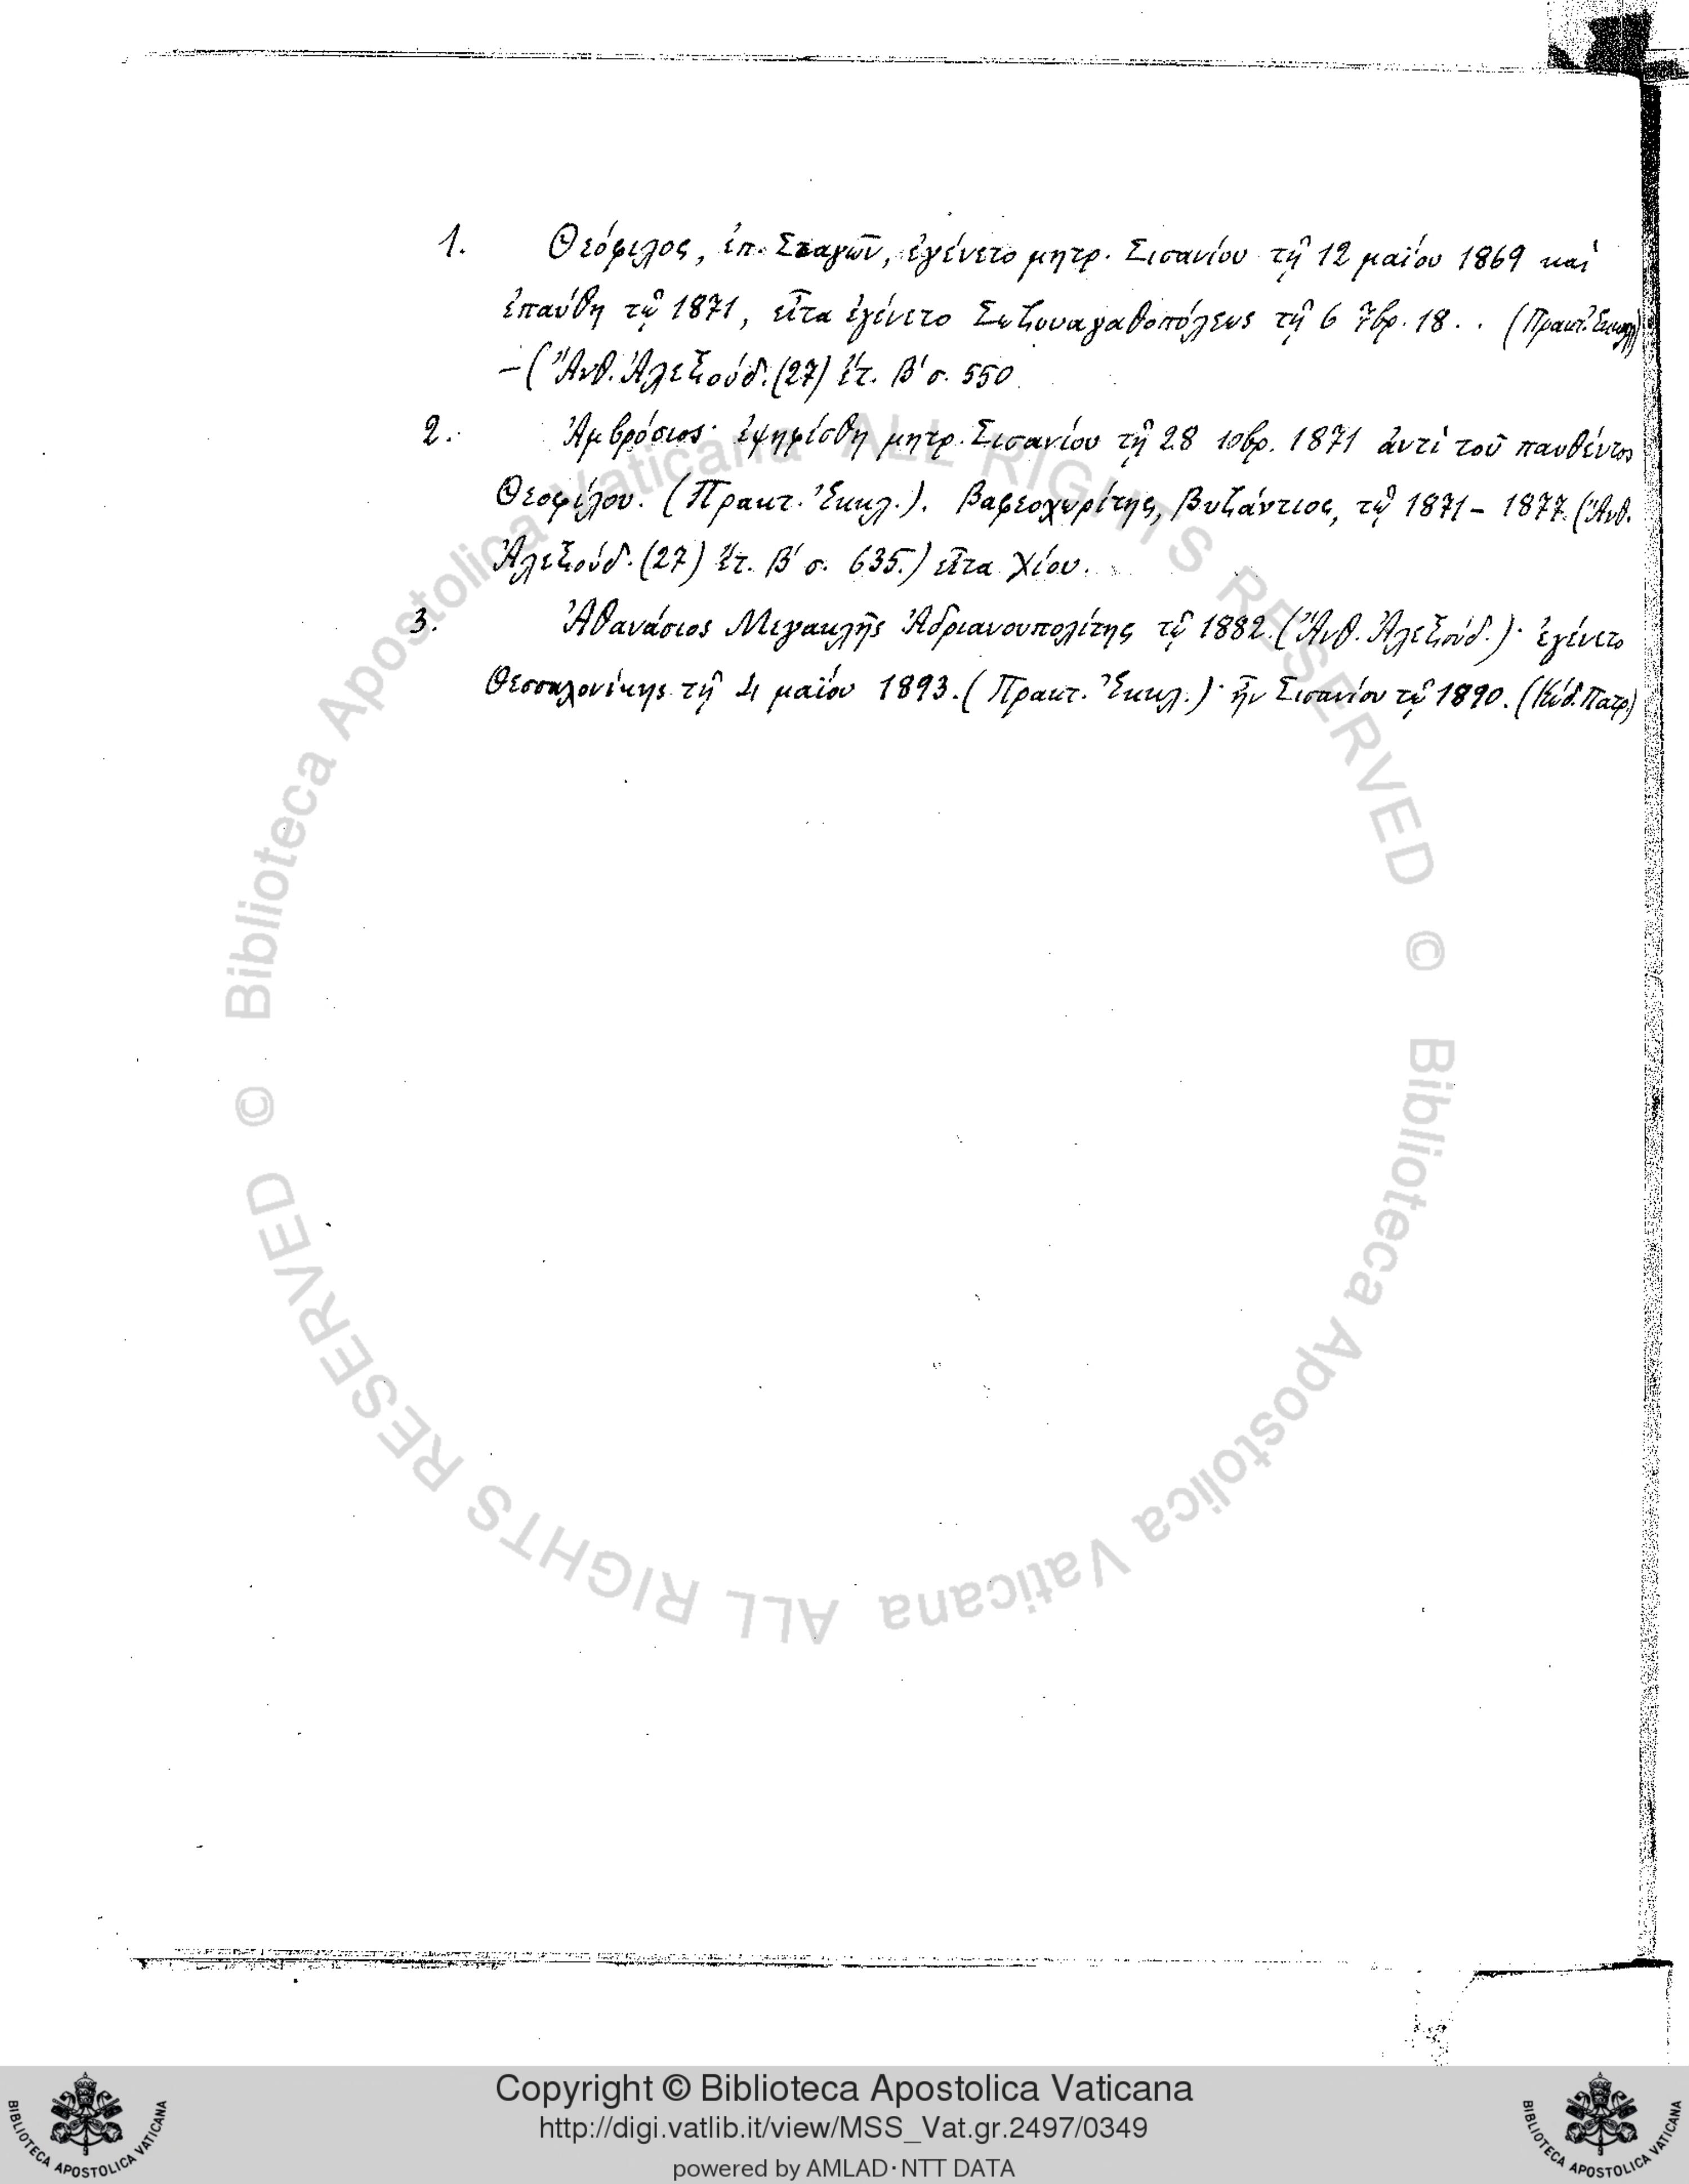 1. Θεόφιλος, ἐπ. Σταγῶν, ἐγένετο μητρ. Σισανίου τῇ 12 μαΐου 1869 καὶ
ἐπαύθη τῷ 1871, εἶτα ἐγένετο Σωζουαγαθοπόλεως τῇ 6 7βρ. 18 . . (Πρακτ. Ἐκκλ)
– (Ἀνθ. Ἀλεξούδ. (27) ἔτ. Β΄ σ. 550
2. Ἀμβρόσιος· ἐψηφίσθη μητρ. Σισανίου τῇ 28 10βρ. 1871 ἀντὶ τοῦ παυθέντος
Θεοφίλου. (Πρακτ. Ἐκκλ.). Βαφεοχωρίτης, Βυζάντιος, τῷ 1871 – 1877. (Ἀνθ.
Ἀλεξούδ. (27) ἔτ. Β΄ σ. 635.) εἶτα Χίου.
3. Ἀθανάσιος Μεγακλῆς Ἀδριανουπολίτης τῷ 1882. (Ἀνθ. Ἀλεξούδ.)· ἐγένετο
Θεσσαλονίκης τῇ 4 μαΐου 1893. (Πρακτ. Ἐκκλ.)· ἦν Σισανίου τῷ 1890. (Κώδ. Πατρ)
© Biblioteca Apostolica Vaticana ALL RIGHTS RESERVED
© Biblioteca Apostolica Vaticana ALL RIGHTS RESERVED
Copyright © Biblioteca Apostolica Vaticana
http://digi.vatlib.it/view/MSS_Vat.gr.2497/0349
powered by AMLAD·NTT DATA
BIBLIOTECA APOSTOLICA VATICANA
BIBLIOTECA APOSTOLICA VATICANA